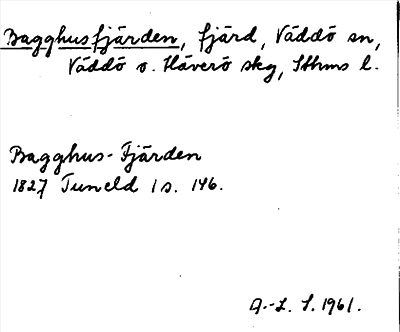 Bagghusfjärden, fjärd, Väddö sn,
Väddö o. Häverö skg, Sthms l.
Bagghus-Fjärden
1827 Tuneld 1 s. 146.
A.-L. S. 1961.